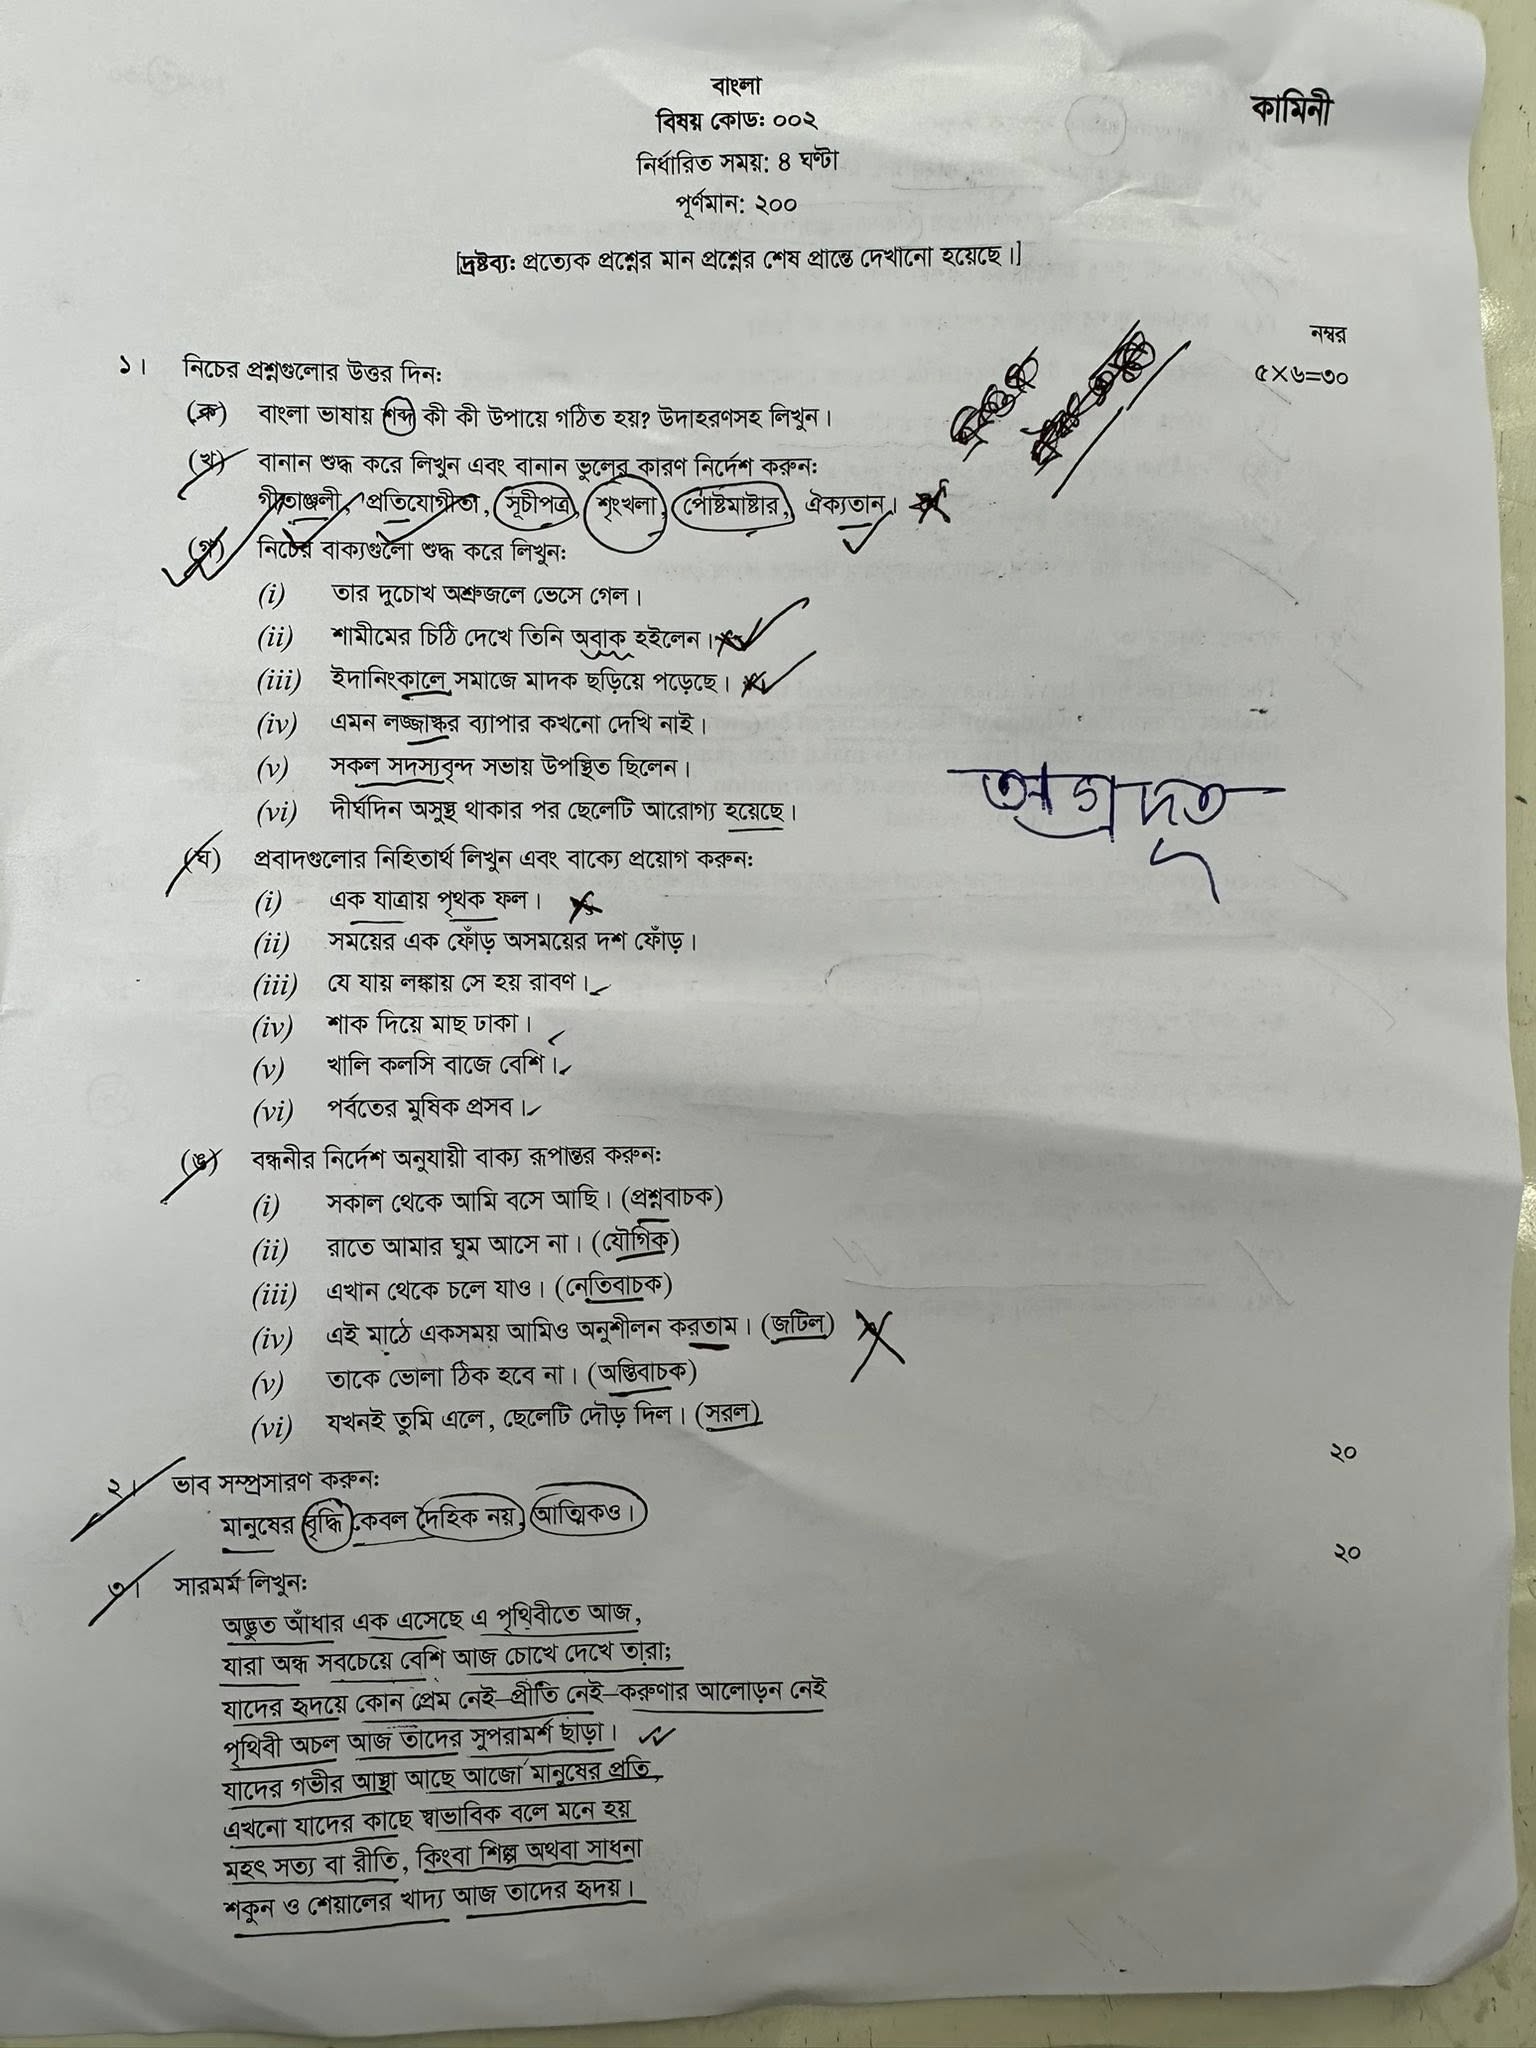 বাংলা
কামিনী
বিষয় কোড: ০০২
নির্ধারিত সময়: ৪ ঘণ্টা
পূর্ণমান: ২০০
[দ্রষ্টব্য: প্রত্যেক প্রশ্নের মান প্রশ্নের শেষ প্রান্তে দেখানো হয়েছে।]
নম্বর
১। নিচের প্রশ্নগুলোর উত্তর দিন: ৫×৬=৩০
(ক) বাংলা ভাষায় শব্দ কী কী উপায়ে গঠিত হয়? উদাহরণসহ লিখুন।
(খ) বানান শুদ্ধ করে লিখুন এবং বানান ভুলের কারণ নির্দেশ করুন:
গীতাঞ্জলী, প্রতিযোগীতা, সূচীপত্র, শৃংখলা, পোষ্টমাষ্টার, ঐক্যতান।
(গ) নিচের বাক্যগুলো শুদ্ধ করে লিখুন:
(i) তার দুচোখ অশ্রুজলে ভেসে গেল।
(ii) শামীমের চিঠি দেখে তিনি অবাক হইলেন।
(iii) ইদানিংকালে সমাজে মাদক ছড়িয়ে পড়েছে।
(iv) এমন লজ্জাষ্কর ব্যাপার কখনো দেখি নাই।
(v) সকল সদস্যবৃন্দ সভায় উপস্থিত ছিলেন।
(vi) দীর্ঘদিন অসুস্থ থাকার পর ছেলেটি আরোগ্য হয়েছে।
অগ্রদূত
(ঘ) প্রবাদগুলোর নিহিতার্থ লিখুন এবং বাক্যে প্রয়োগ করুন:
(i) এক যাত্রায় পৃথক ফল।
(ii) সময়ের এক ফোঁড় অসময়ের দশ ফোঁড়।
(iii) যে যায় লঙ্কায় সে হয় রাবণ।
(iv) শাক দিয়ে মাছ ঢাকা।
(v) খালি কলসি বাজে বেশি।
(vi) পর্বতের মুষিক প্রসব।
(ঙ) বন্ধনীর নির্দেশ অনুযায়ী বাক্য রূপান্তর করুন:
(i) সকাল থেকে আমি বসে আছি। (প্রশ্নবাচক)
(ii) রাতে আমার ঘুম আসে না। (যৌগিক)
(iii) এখান থেকে চলে যাও। (নেতিবাচক)
(iv) এই মাঠে একসময় আমিও অনুশীলন করতাম। (জটিল)
(v) তাকে ভোলা ঠিক হবে না। (অস্তিবাচক)
(vi) যখনই তুমি এলে, ছেলেটি দৌড় দিল। (সরল)
২। ভাব সম্প্রসারণ করুন: ২০
মানুষের বৃদ্ধি কেবল দৈহিক নয়, আত্মিকও।
৩। সারমর্ম লিখুন: ২০
অদ্ভুত আঁধার এক এসেছে এ পৃথিবীতে আজ,
যারা অন্ধ সবচেয়ে বেশি আজ চোখে দেখে তারা;
যাদের হৃদয়ে কোন প্রেম নেই–প্রীতি নেই–করুণার আলোড়ন নেই
পৃথিবী অচল আজ তাদের সুপরামর্শ ছাড়া।
যাদের গভীর আস্থা আছে আজো মানুষের প্রতি,
এখনো যাদের কাছে স্বাভাবিক বলে মনে হয়
মহৎ সত্য বা রীতি, কিংবা শিল্প অথবা সাধনা
শকুন ও শেয়ালের খাদ্য আজ তাদের হৃদয়।